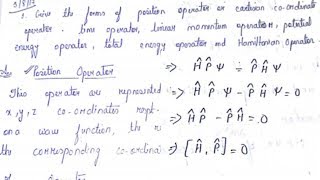 3/8/13
1. Give the forms of position operator or cartesian co-ordinate
operator - time operator, linear momentum operator, potential
energy operator, total energy operator and Hamiltonian Operator.
Position Operator
This operator are represented
x, y, z co-ordinates rept-
on a wave function, the r
the corresponding co-ordina
⇒ Ĥ P̂ Ψ = P̂ Ĥ Ψ
⇒ Ĥ P̂ Ψ - P̂ Ĥ Ψ = 0
⇒ Ĥ P̂ - P̂ Ĥ = 0
⇒ [Ĥ, P̂] = 0